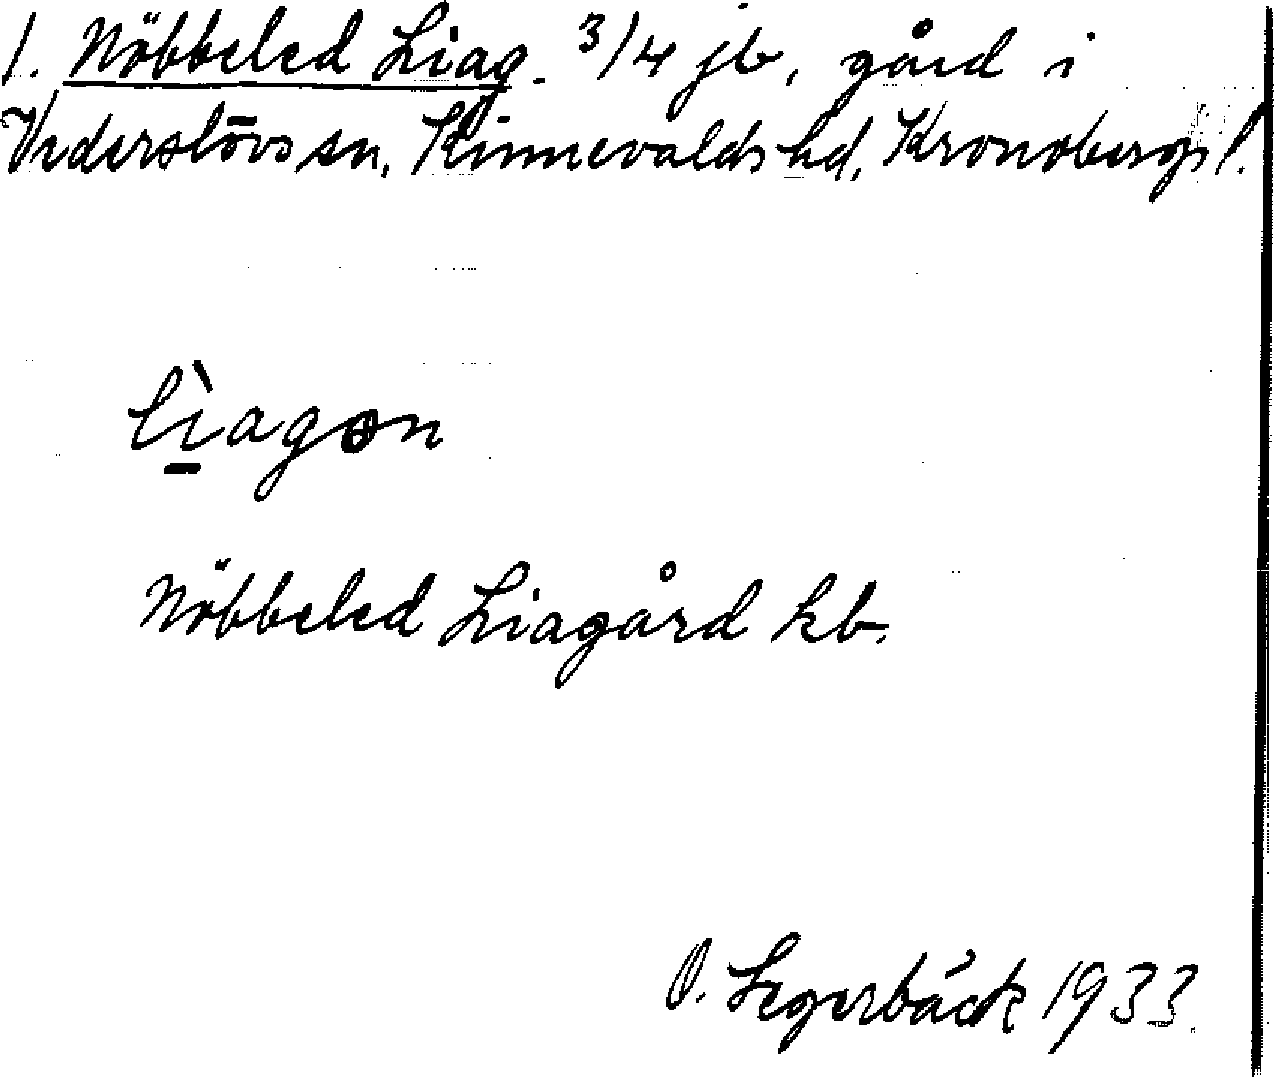 1. Nöbbeled Liag. 3/4 jb, gård i
Vederslövs sn, Kinnevalds hd, Kronobergs l.
lìagən
Nöbbeled Liagård kb.
O. Segerbäck 1933.